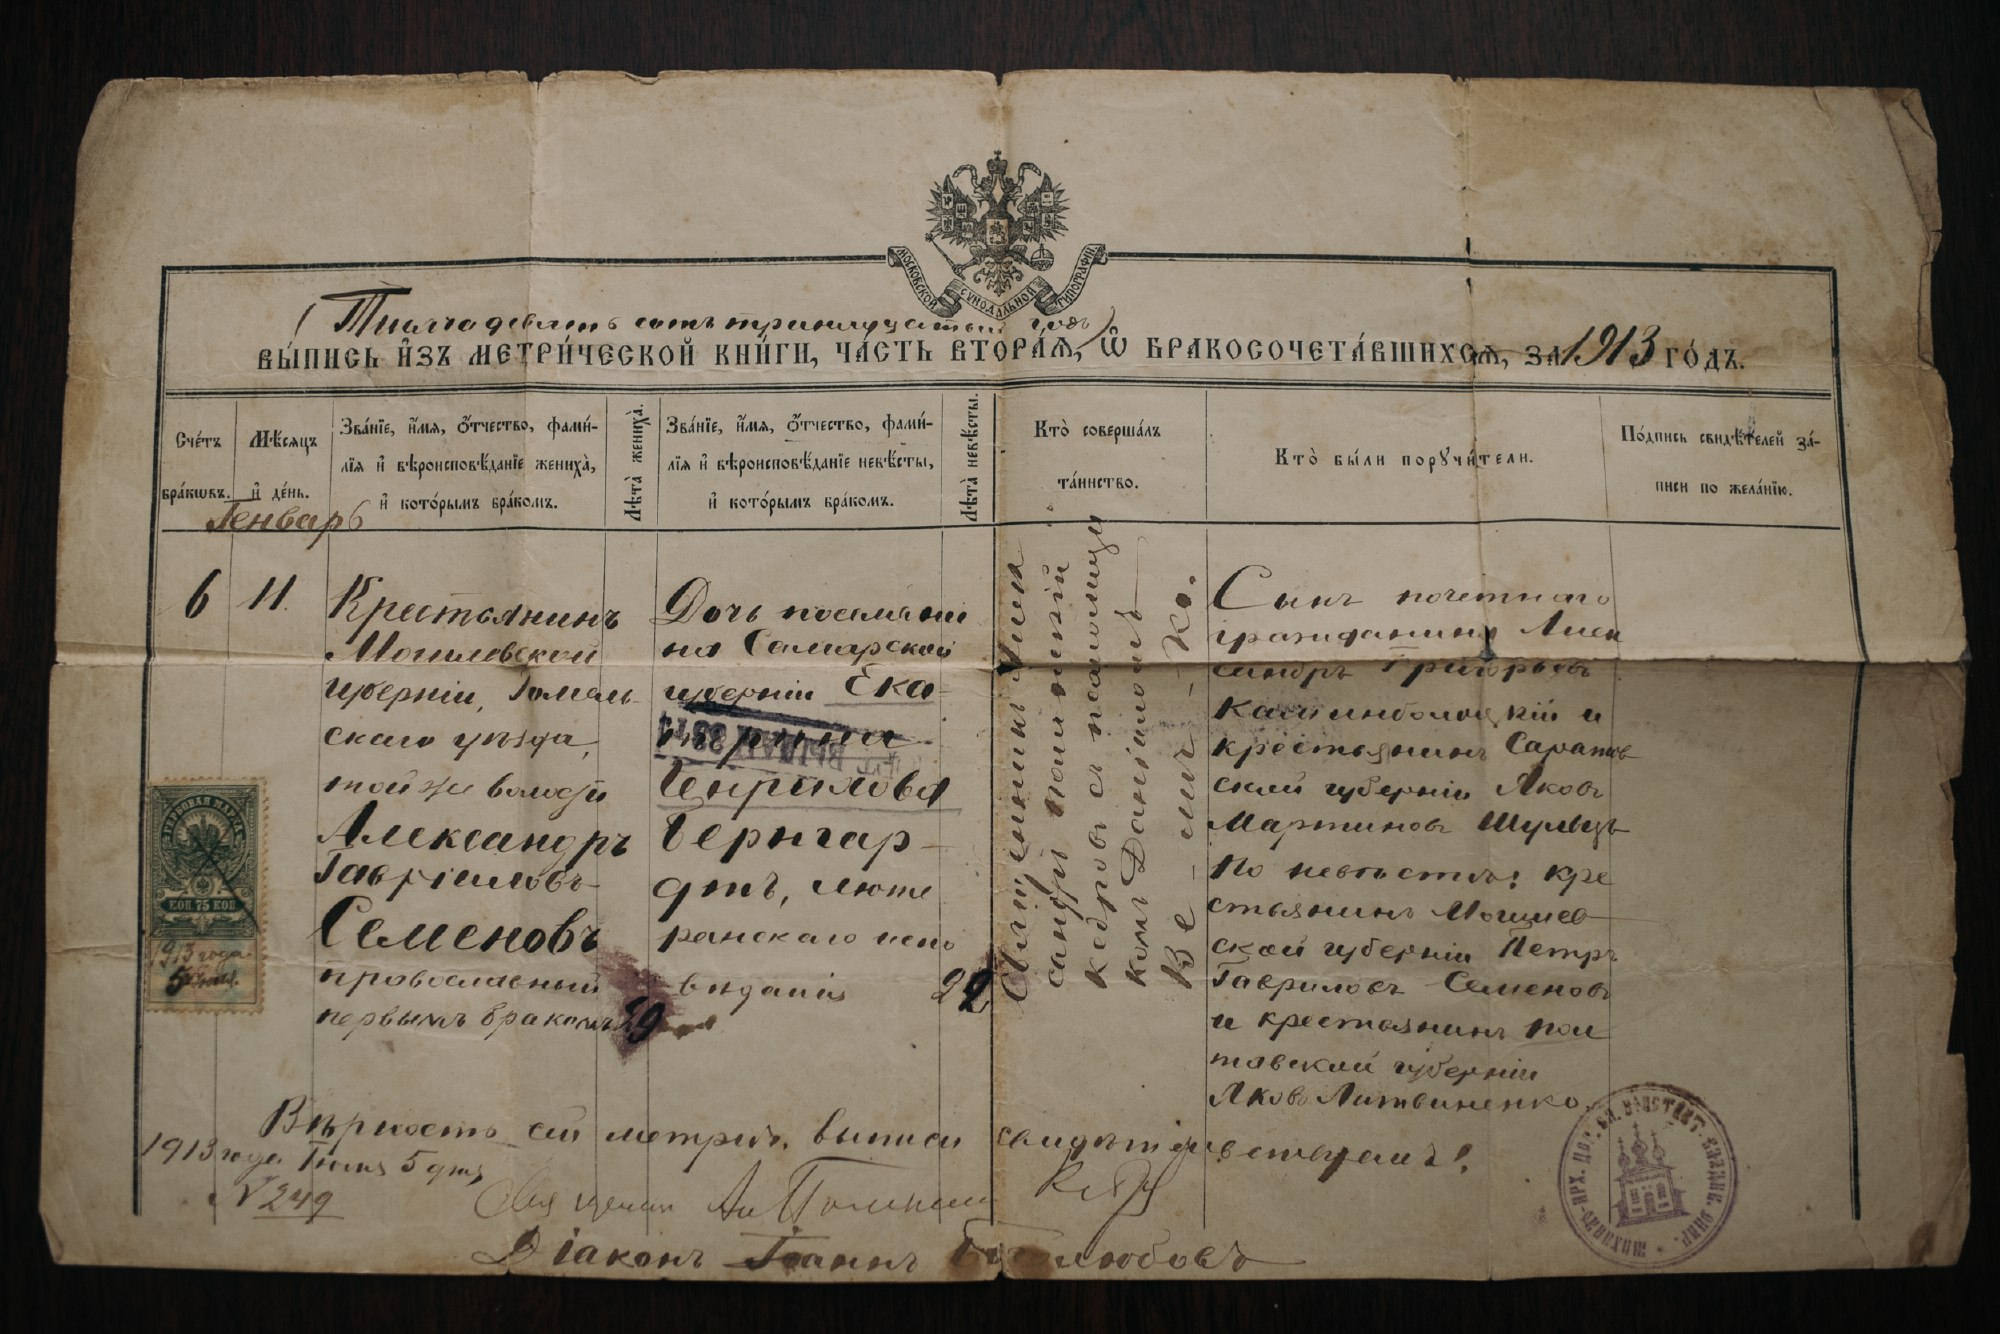 МОСКОВСКОЙ СѴНОДАЛЬНОЙ ТИПОГРАФІИ.
(Тысяча девять сотъ тринадцатый годъ)
ВЫ́ПИСЬ И҆́ЗЪ МЕТРИ́ЧЕСКОЙ КНИ́ГИ, ЧА́СТЬ ВТОРА́Я, Ѡ҆ БРАКОСОЧЕТА́ВШИХСЯ, ЗА 1913 ГО́ДЪ.
Сче́тъ
бра́кѡвъ.
Мѣ́сяцъ
и҆ де́нь.
Зва́нїе, и҆́мя, ѻ҆́тчество, фами́-
лїя и҆ вѣроисповѣ́данїе жениха̀,
и҆ кото́рымъ бра́комъ.
Лѣ́та̀ жениха̀.
Зва́нїе, и҆́мя, ѻ҆́тчество, фами́-
лїя и҆ вѣроисповѣ́данїе невѣ́сты,
и҆ кото́рымъ бра́комъ.
Лѣ́та̀ невѣ́сты.
Кто̀ соверша́лъ
та́инство.
Кто̀ бы́ли порꙋчи́тели.
По́дпись свидѣ́телей за́-
писи по жела́нїю.
Генварь
6
11.
Крестьянинъ
Могилевской
губерніи, Гомель-
скаго уѣзда,
той же волости
Александръ
Гавріиловъ
Семеновъ
православный
первымъ бракомъ
29
Дочь поселяни
на Самарской
губерніи Ека-
терина
Генрихова
Бернгар-
дтъ, люте
ранскаго испо
вѣданія
22
Священникъ Алек
сандръ Полянскій
Кедровъ съ псаломщи
комъ Даніиломъ
Ве-лич-Ко.
Сынъ почетнаго
гражданина Алек
сандръ Григорьевъ
и
крестьянинъ Саратов
ской губерніи Яковъ
Мартиновъ Шульцъ
По невѣстѣ: кре
стьянинъ Могилев
ской губерніи Петръ
Гавриловъ Семеновъ
и крестьянинъ Пол
тавской губерніи
Яковъ Литвиненко.
ГЕРБОВАЯ МАРКА
КОП 75 КОП
1913 года
5
Вѣрность сей метрич. выписи свидѣтельствуемъ:
1913 года Іюля 5 дня
№ 249
Священникъ Ал Полянскій
Діаконъ Іоаннъ Боголюбовъ